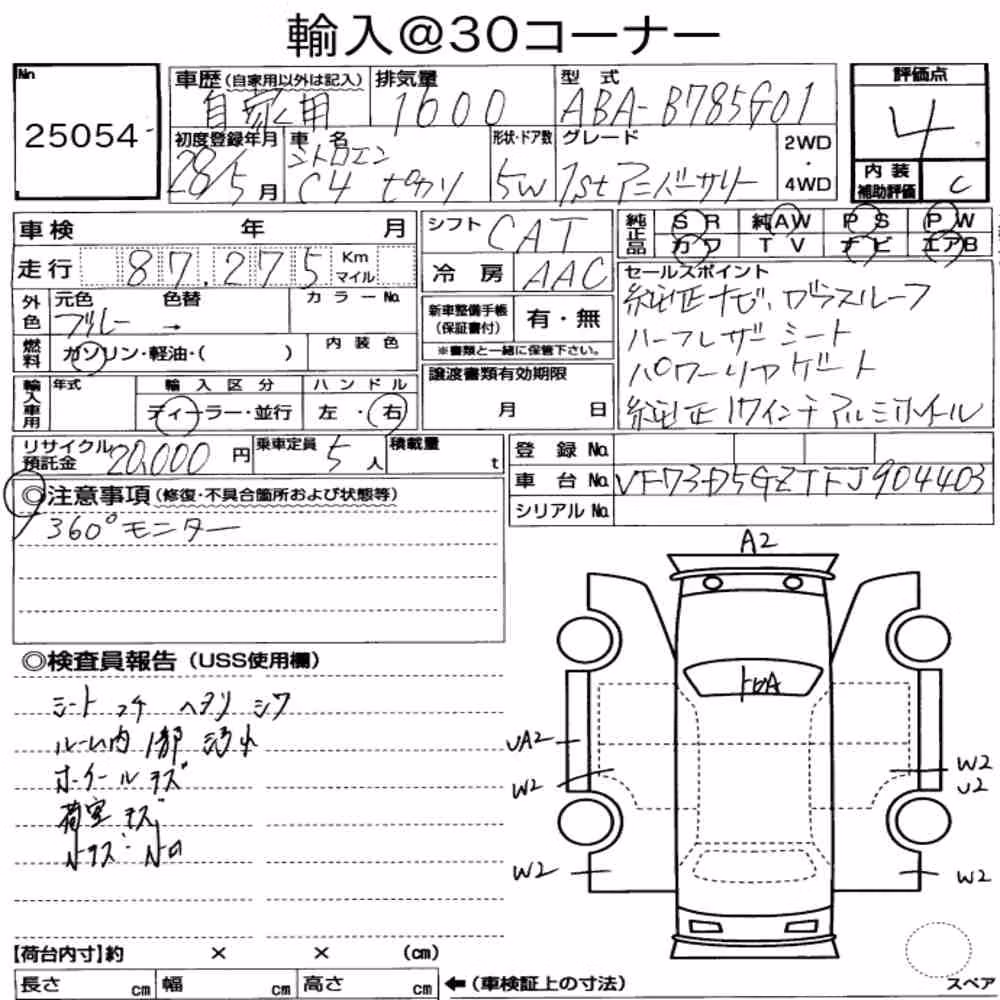 輸入@30コーナー
No
25054
車歴(自家用以外は記入)
自家用
排気量
1600
型式
ABA-B785G01
評価点
4
内装
補助評価
C
初度登録年月
28/5月
車名
シトロエン
C4 ピカソ
形状・ドア数
5W
グレード
1stアニバーサリー
2WD
・
4WD
車検 年 月
走行 87.275 Km
マイル
シフト CAT
冷房 AAC
純正品 SR 純AW PS PW
カワ TV ナビ エアB
外色 元色 色替 カラーNo.
ブルー →
燃料 ガソリン・軽油・( )
内装色
新車整備手帳
(保証書付)
有・無
※書類と一緒に保管下さい。
セールスポイント
純正ナビ、ガラスルーフ
ハーフレザーシート
パワーリアゲート
純正17インチアルミホイール
輸入車用 年式 輸入区分 ハンドル
ディーラー・並行 左・右
譲渡書類有効期限
月 日
リサイクル
預託金 20,000円
乗車定員 5人
積載量 t
登録No.
車台No. VF73D5GZTFJ904403
シリアルNo.
◎注意事項(修復・不具合箇所および状態等)
360°モニター
◎検査員報告(USS使用欄)
シート コゲ ヘタリ シワ
ルーム内
ホイールキズ
荷室キズ
A2
UA2
W2
W2
W2
U2
W2
【荷台内寸】約 × × (cm)
長さ cm 幅 cm 高さ cm
←(車検証上の寸法)
スペア